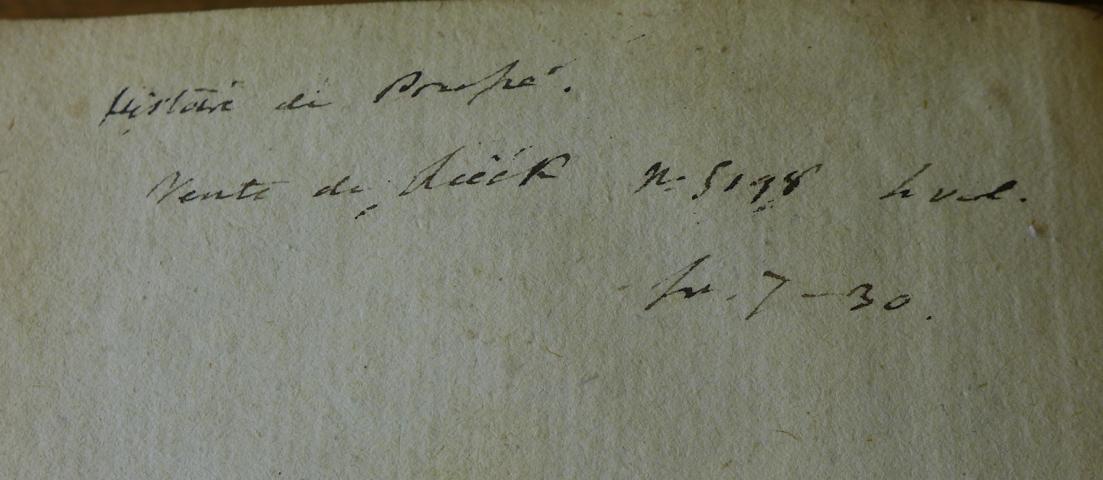 Histoire de Pompée.
Vente de N° 5198 vol.
fr. 7-30.